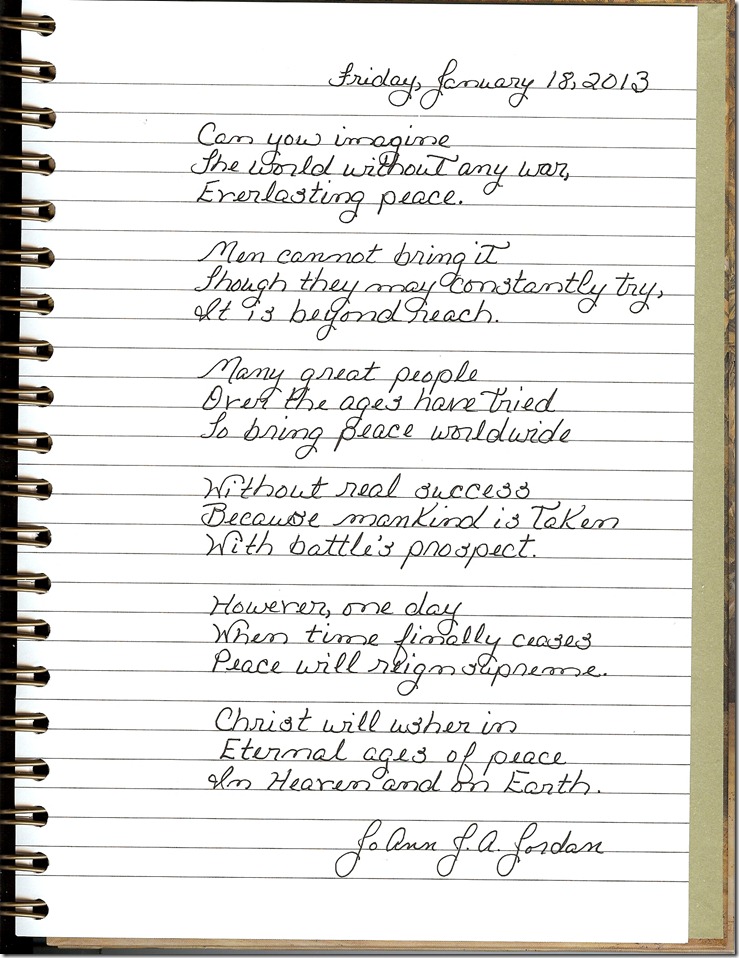 Friday, January 18, 2013
Can you imagine
The world without any war,
Everlasting peace.
Men cannot bring it
Though they may constantly try,
It is beyond reach.
Many great people
Over the ages have tried
To bring peace worldwide
Without real success
Because mankind is taken
With battle's prospect.
However, one day
When time finally ceases
Peace will reign supreme.
Christ will usher in
Eternal ages of peace
In Heaven and on Earth.
JoAnn J. A. Jordan